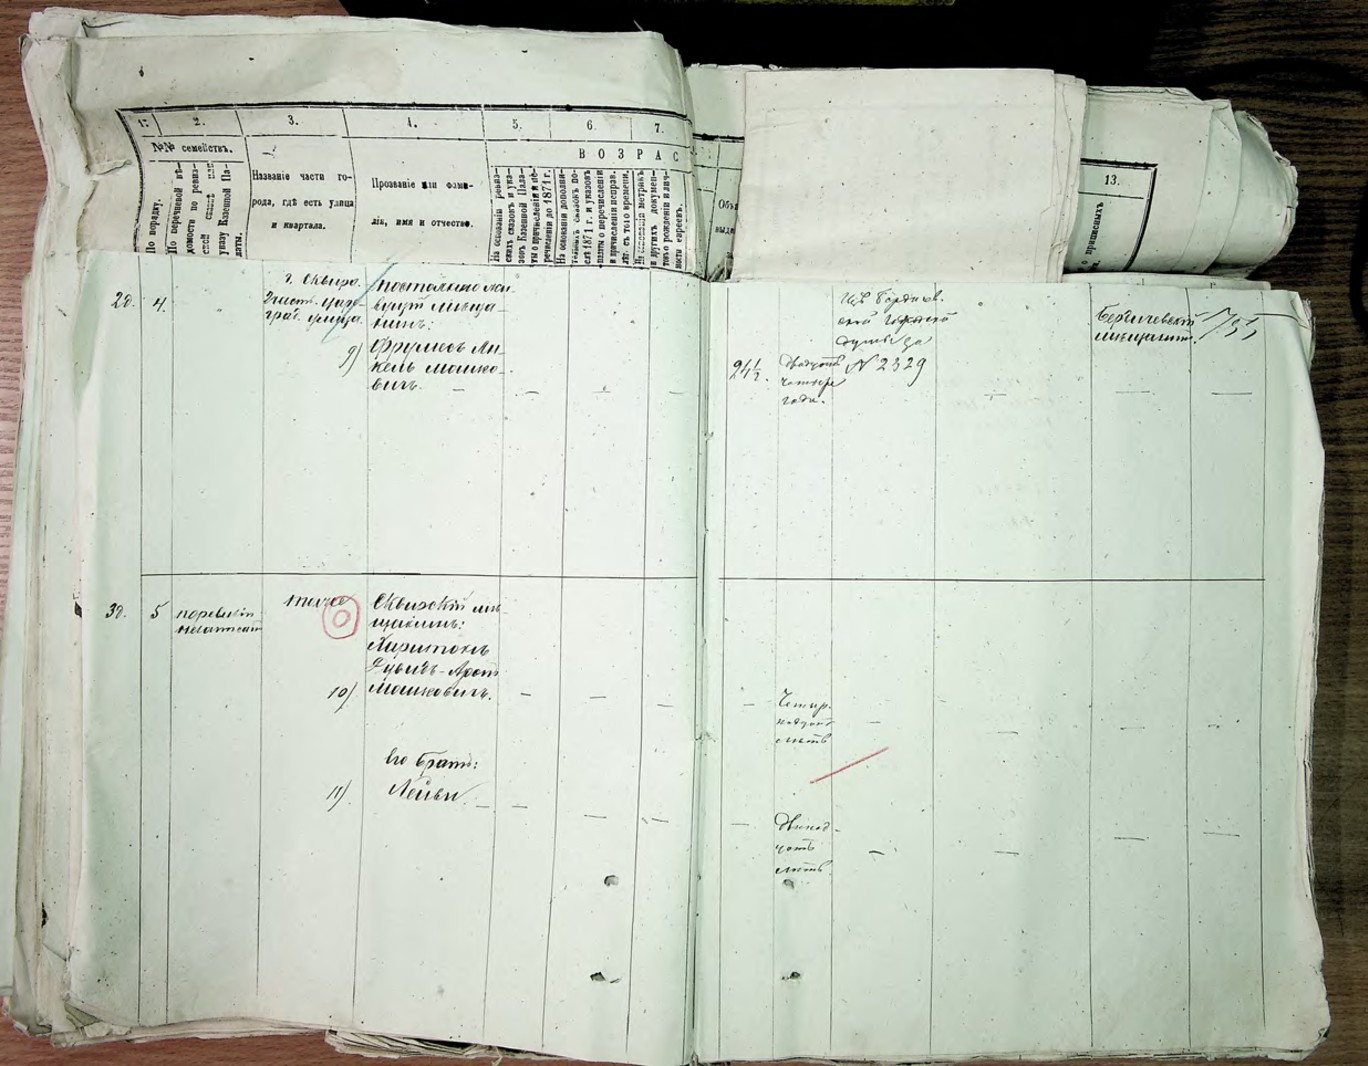 1. 2. 3. 4. 5. 6. 7.
№№ семействъ.
ВОЗРАС
По порядку.
По перечневой вѣ-
домости по ревиз-
ской сказкѣ или
указу Казенной Па-
латы.
Названіе части го-
рода, гдѣ есть улица
и квартала.
Прозваніе или фами-
лія, имя и отчество.
На основаніи ревиз-
скихъ сказокъ и ука-
зовъ Казенной Пала-
ты о причисленіи и пе-
речисленіи до 1871 г.
На основаніи дополни-
тельныхъ сказокъ по-
слѣ 1871 г. и указовъ
палаты о перечисленіи
и причисленіи исправ.
лѣт. съ того времени.
На основаніи метрикъ
и другихъ докумен-
товъ о рожденіи и лич-
ности евреевъ.
13.
о приписныхъ
2д. 4.
г. Сквира.
2 част.
улица
Постоянно жи-
вущ мѣща-
нинъ:
9) Фрумесъ Ан-
кель Мошко-
вичъ.
24½.
Двадцать
четыре
года.
Изъ Бердичев.
ской Городской
думы за
№ 2329
Бердичевскій
мѣщанинъ.
3д. 5
тоже
Сквирскій мѣ-
щанинъ:
Харитонъ
Дувидъ-Арон
10) Мошковичъ.
Четыр.
надцать
лѣтъ
Его братъ:
11) Лейви
Двенад-
цать
лѣтъ.